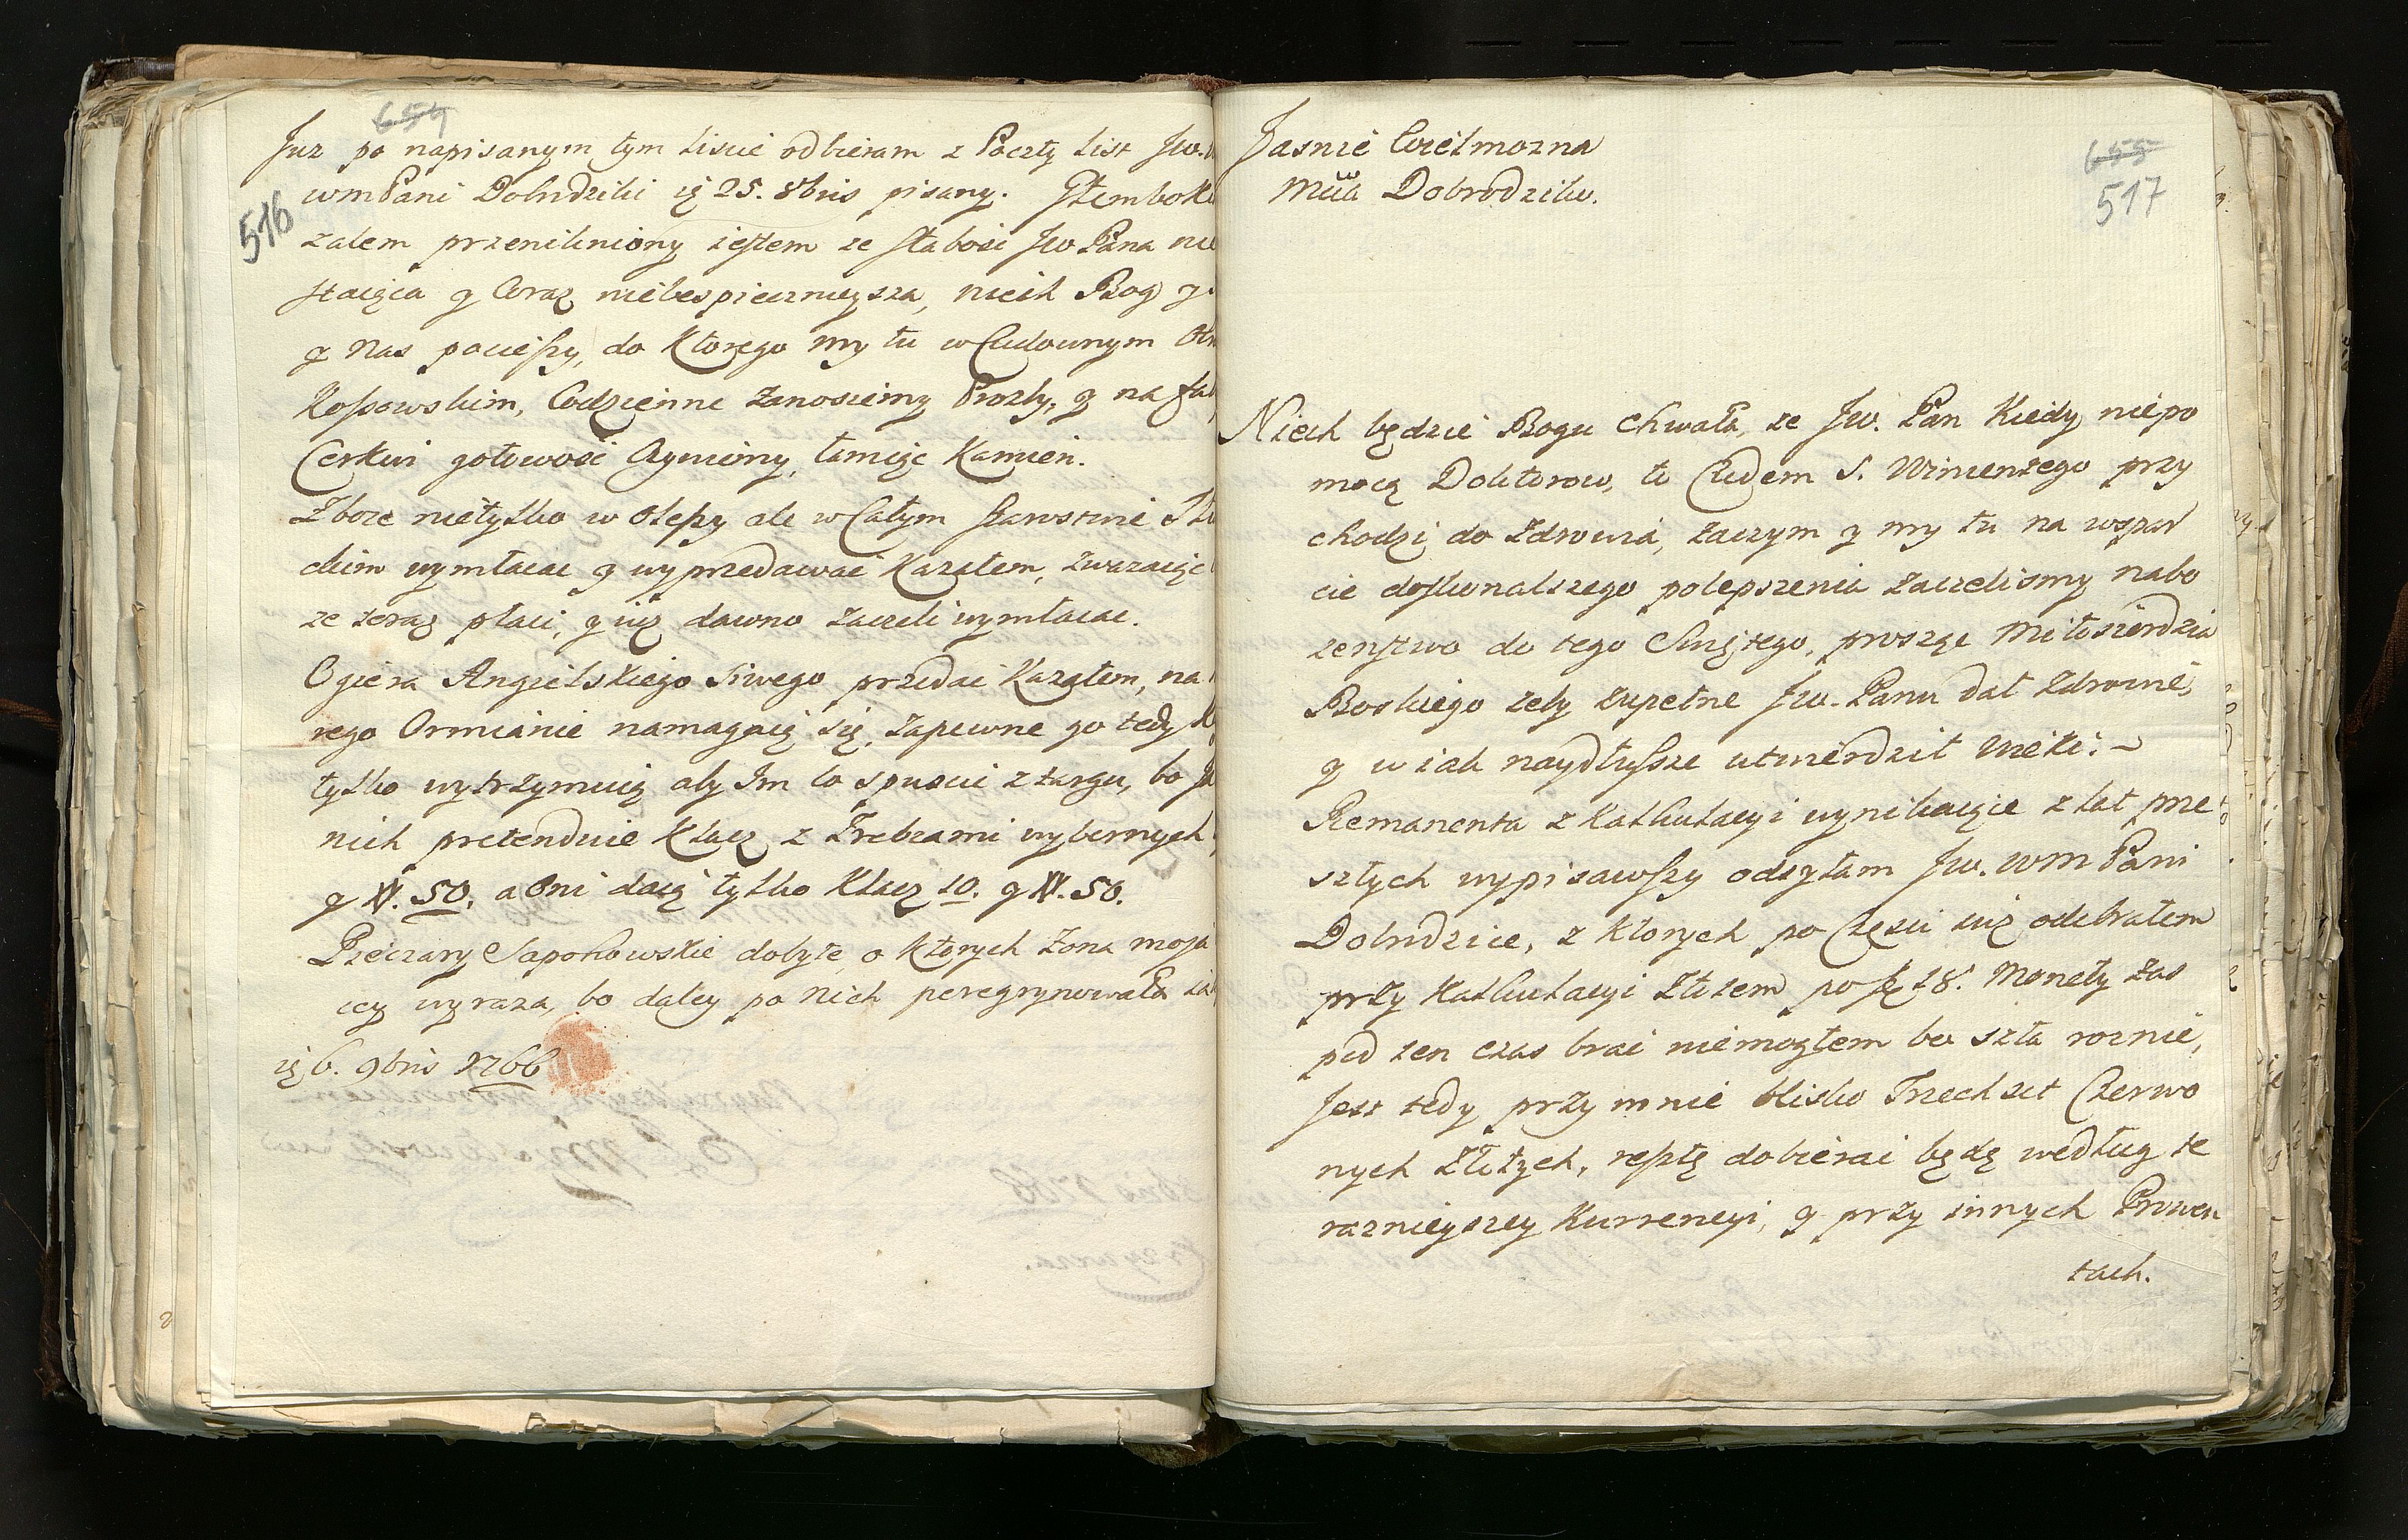 654
516
Juz po napisanym tym liscie odbieram z Poczty list Jw.
wmPani Dobrdziki ię 25. 8bris pisany. Głemboki
zalem przenikniony iestem ze słabosi Jw Pana nie
staiąca y Coraz niebespiecznieysza, niech Bog
y Nas pocieszy, do Ktorego my tu w Cudownym
Kossowskim, Codzienne zanosiemy Prozby, y na
Cerkwi gotowosc Czyniemy, łamiąc Kamien.
Zboze nietylko w Olepy ale w Całym Starostwie
ckim wymłacac y wyprzedawac Kazałem, zwazaiąc
ze teraz płaci, y iuz dawno zaczeli wymłacac.
Ogiera Angielskiego siwego przedac Kazałem, na
rego Ormianie namagaią się, zapewne go tedy
tylko wytrzymuią aby Im co spuscic z targu, bo
nich pretenduie Klacz z Zrebcami wybornych
y N. 50. a Oni daią tylko Klacz 10. y N. 50.
Pieczary Sapohowskie dobyte, o Ktorych Zona moja
icy wyraza, bo daley po Nich peregrynowała
ię 6. 9bris 1766
655
517
Jasnie Wielmozna
Mcia Dobrodziko.
Niech będzie Bogu Chwała, ze Jw. Pan Kiedy niepo
mocą Doktorow, to Cudem S. Wincentego przy
chodzi do zdrowia, zaczym y my tu na wspar
cie doskonalszego polepszenia zaczelismy nabo
zenstwo do tego Swiętego, proszące Miłosierdzia
Boskiego zeby zupełne Jw. Panu dał zdrowie,
y w iak naydłussze utwierdził Wieki. ~
Remanenta z Kalkulacyi wynikaiące z lat prze
szłych wypisawszy odsyłam Jw. WM Pani
Dobrdzice, z Ktorych po Częsci iuz odebrałem
przy Kalkulacyi Złotem po 18. Monety zas
pod ten czas brac niemogłem bo szła roznie,
Jest tedy przy mnie blisko Trzechset Czerwo
nych Złotych, resztę dobierac będę według te
raznieyszey Kurrencyi, y przy innych Prowen
tach.